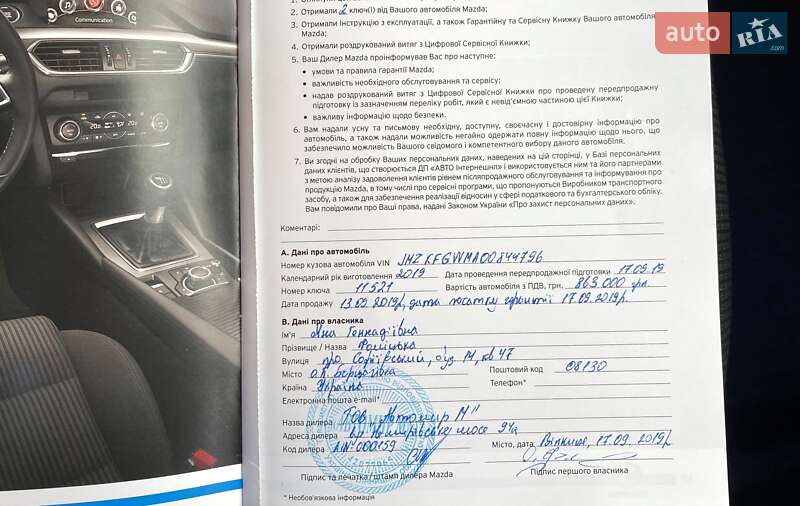 Communication
auto RIA.com
2. Отримали 2 ключ(і) від Вашого автомобіля Mazda;
3. Отримали Інструкцію з експлуатації, а також Гарантійну та Сервісну Книжку Вашого автомобіля
Mazda;
4. Отримали роздрукований витяг з Цифрової Сервісної Книжки;
5. Ваш Дилер Mazda проінформував Вас про наступне:
• умови та правила гарантії Mazda;
• важливість необхідного обслуговування та сервісу;
• надав роздрукований витяг з Цифрової Сервісної Книжки про проведену передпродажну
підготовку із зазначенням переліку робіт, який є невід'ємною частиною цієї Книжки;
• важливу інформацію щодо безпеки.
6. Вам надали усну та письмову необхідну, доступну, своєчасну і достовірну інформацію про
автомобіль, а також надали можливість негайно одержати повну інформацію щодо нього, що
забезпечило можливість Вашого свідомого і компетентного вибору даного автомобіля.
7. Ви згодні на обробку Ваших персональних даних, наведених на цій сторінці, у Базі персональних
даних клієнтів, що створюється ДП «АВТО Інтернешнл» і використовується ним та його партнерами
з метою аналізу задоволення клієнтів рівнем післяпродажного обслуговування та інформування про
продукцію Mazda, в тому числі про сервісні програми, що пропонуються Виробником транспортного
засобу, а також для забезпечення реалізації відносин у сфері податкового та бухгалтерського обліку.
Вам повідомили про Ваші права, надані Законом України «Про захист персональних даних».
Коментарі:
А. Дані про автомобіль
Номер кузова автомобіля VIN JMZKFGWMA00844796
Календарний рік виготовлення 2019 Дата проведення передпродажної підготовки 17.09.19
Номер ключа 11521 Вартість автомобіля з ПДВ, грн. 863 000 грн.
Дата продажу 13.09.2019р, дата початку гарантії 17.09.2019р.
В. Дані про власника
Ім'я Яна Геннадіївна
Прізвище / Назва
Вулиця кв 47
Місто Поштовий код 08130
Країна Україна Телефон*
Електронна пошта e-mail*
Назва дилера ТОВ "Автомир М"
Адреса дилера шосе 94а
Код дилера 000159 Місто, дата, Вінниця, 17.09.2019р
Підпис та печатка / штамп дилера Mazda Підпис першого власника
* Необов'язкова інформація